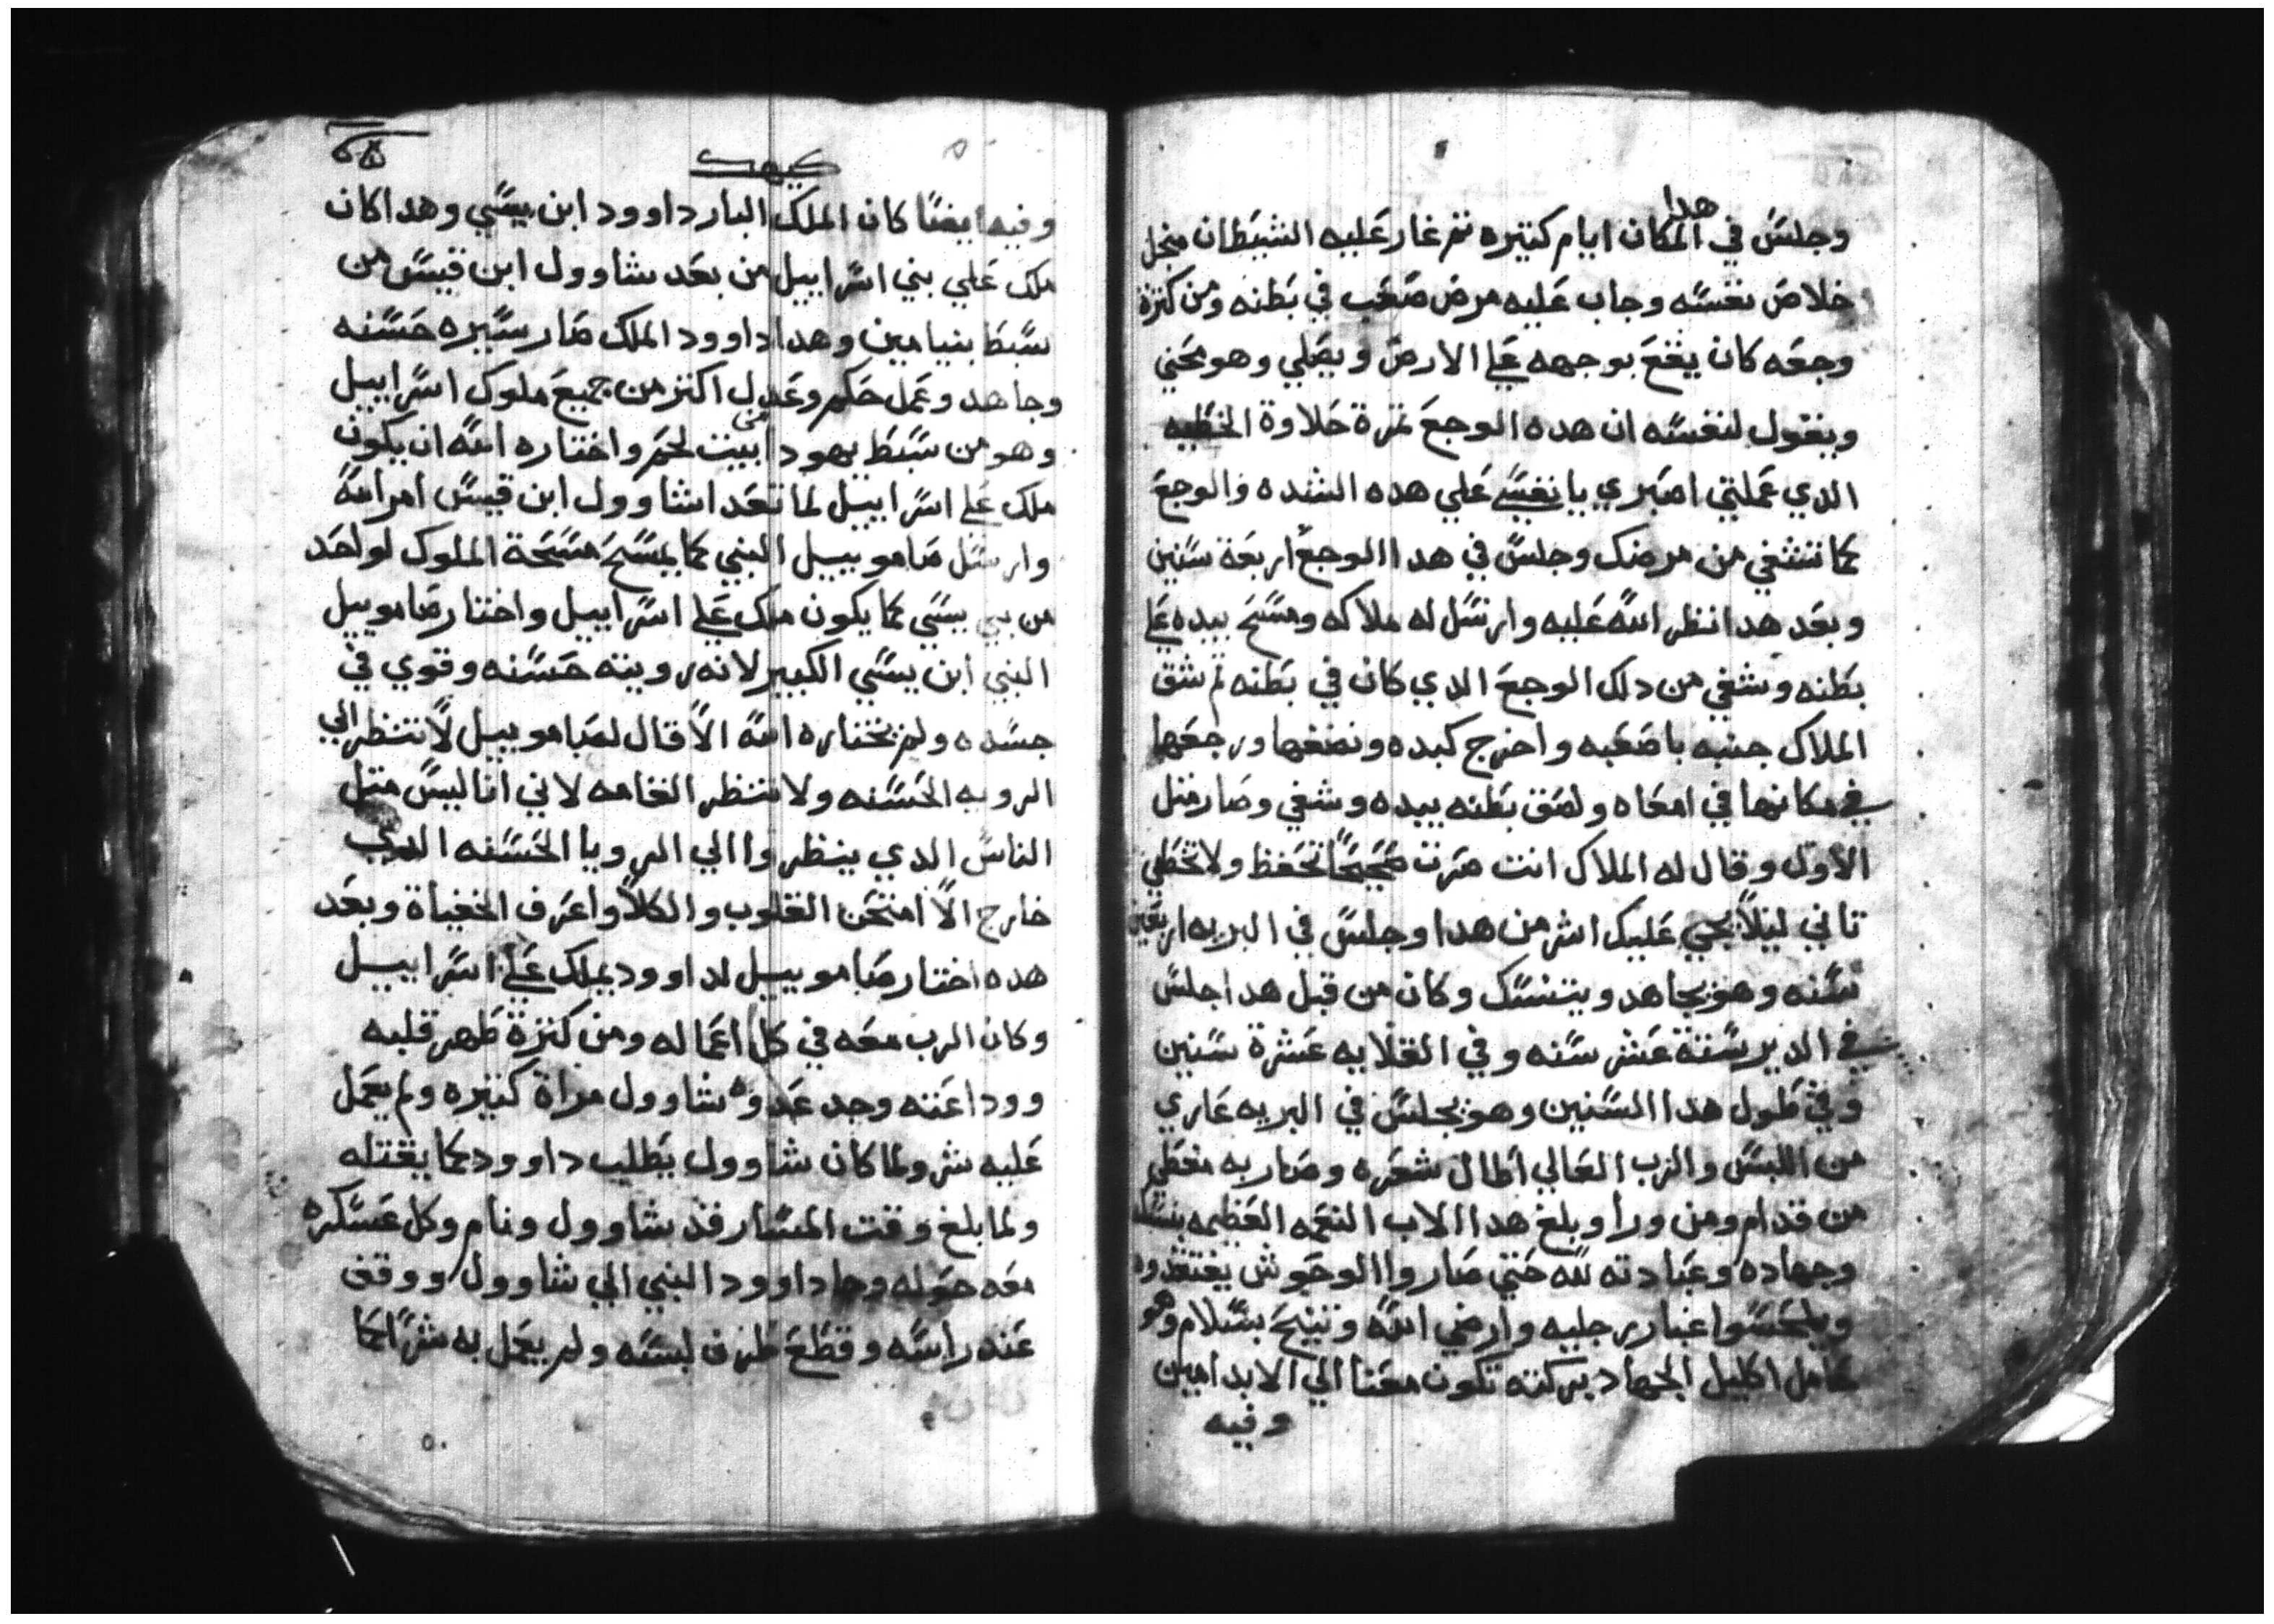 هدا
وجلس في المكان ايام كتيره تم غار عليه الشيطان منجل
خلاص نفسه وجاب عليه مرض صعب في بطنه ومن كترة
وجعه كان يقع بوجهه علي الارض ويصلي وهو محني
ويقول لنفسه ان هده الوجع تمرة حلاوة الخطيه
الدي عملتي اصبري يا نفسي علي هده الشده والوجع
كما تتشفي من مرضك وجلس في هدا الوجع اربعة سنين
وبعد هدا نظر الله عليه وارسل له ملاكه ومسح بيده علي
بطنه وشفي من دلك الوجع الدي كان في بطنه تم شق
الملاك جنبه باصعبه واخرج كبده ونضفها ورجعها
في مكانها في امعاه ولصق بطنه بيده وشفي وصار متل
الاول وقال له الملاك انت صرت صحيحًا تحفظ ولا تخطي
تاني ليلاً يجي عليك اشر من هدا وجلس في البريه اربعين
سنه وهو يجاهد ويتنسك وكان من قبل هدا جلس
في الدير ستة عشر سنه وفي القلايه عشرة سنين
وفي طول هدا السنين وهو يجلس في البريه عاري
من اللبس والرب العالي اطال شعره وصار به مغطي
من قدام ومن ورا وبلغ هدا الاب النعمه العظيمه بنسكه
وجهاده وعبادته لله حتي صاروا الوحوش يفتقدوه
ويلحسوا غبار رجليه وارضي الله وتنيح بسلام وهو
حامل اكليل الجهاد بركته تكون معنا الي الابد امين
وفيه
كيهك
وفيه ايضًا كان الملك البار داوود ابن يسي وهدا كان
ملك علي بني اسراييل من بعد شاوول ابن قيس من
سبط بنيامين وهدا داوود الملك صار سيره حسنه
وجاهد وعمل حكم وعدل اكتر من جميع ملوك اسراييل
وهو من سبط يهودا من بيت لحم واختاره الله ان يكون
ملك علي اسراييل لما تعدا شاوول ابن قيس امر الله
وارسل صامو‌ييل النبي كما يمسح مسحة الملوك لواحد
من بني يسي كما يكون ملك علي اسراييل واختار صامو‌ييل
النبي ابن يسي الكبير لانه رويته حسنه وقوي في
جسده ولم يختاره الله الا قال لصامو‌ييل لا تنظر الي
الرويه الحسنه ولا تنظر القامه لاني انا ليس متل
الناس الدي ينظروا الي الرويا الحسنه الدي
خارج الا امتحن القلوب والكلا واعرف الخفياة وبعد
هده اختار صامو‌ييل لداوود يملك علي اسراييل
وكان الرب معه في كل اعماله ومن كترة طهر قلبه
ووداعته وجد عدوه شاوول مراة كتيره ولم يعمل
عليه شر ولما كان شاوول يطلب داوود كما يقتله
ولما بلغ وقت المسا رقد شاوول ونام وكل عسكره
معه حوله وجا داوود النبي الي شاوول ووقف
عند راسه وقطع طرف لبسه ولم يعمل به شرًا كما